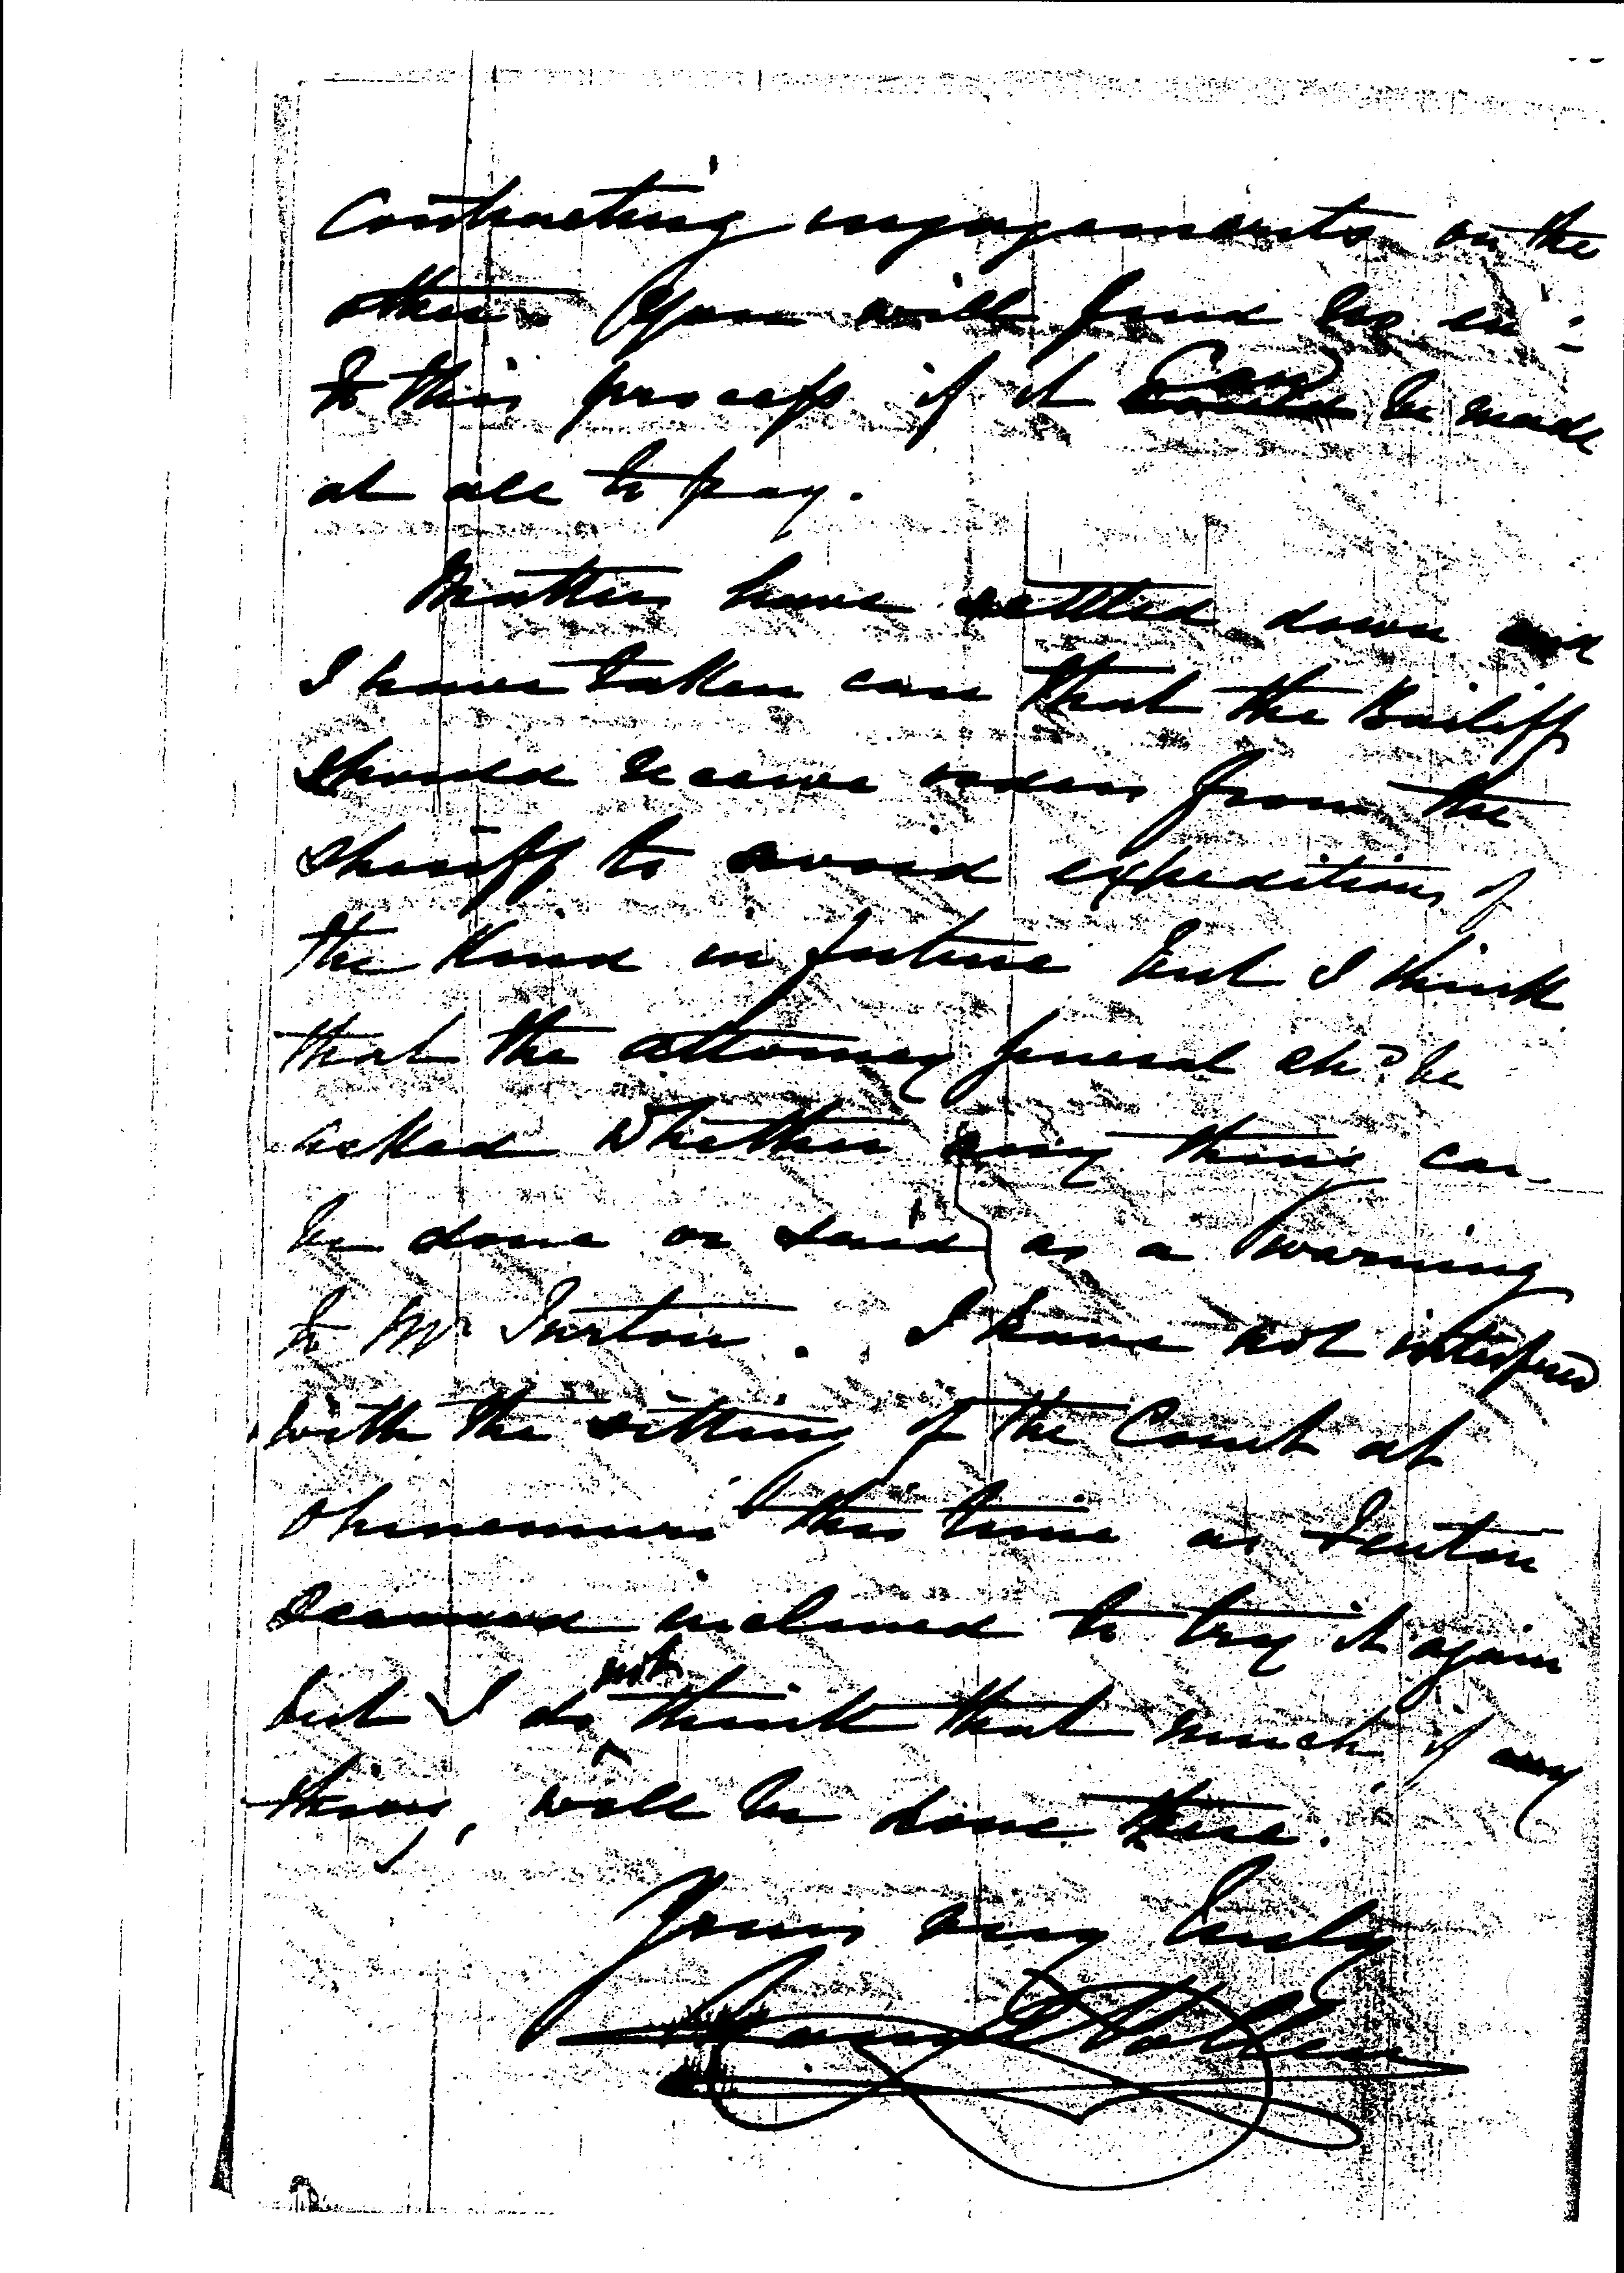 Contracting engagements on the
other. You will find me in
to this process if it can be made
at all to pay.
Matters have settled down and
I have taken care that the Bailiff
should receive orders from the
Sheriff to avoid expeditions of
the kind in future but I think
that the attorney general shd be
asked whether any thing can
be done or said as a warning
to Mr Turton. I have not interfered
with the sitting of the Court at
Ohinemuri this time as Fenton
seemed inclined to try it again
but I do not think that much if any
thing, will be done there.
Yours very truly
Daniel Pollen